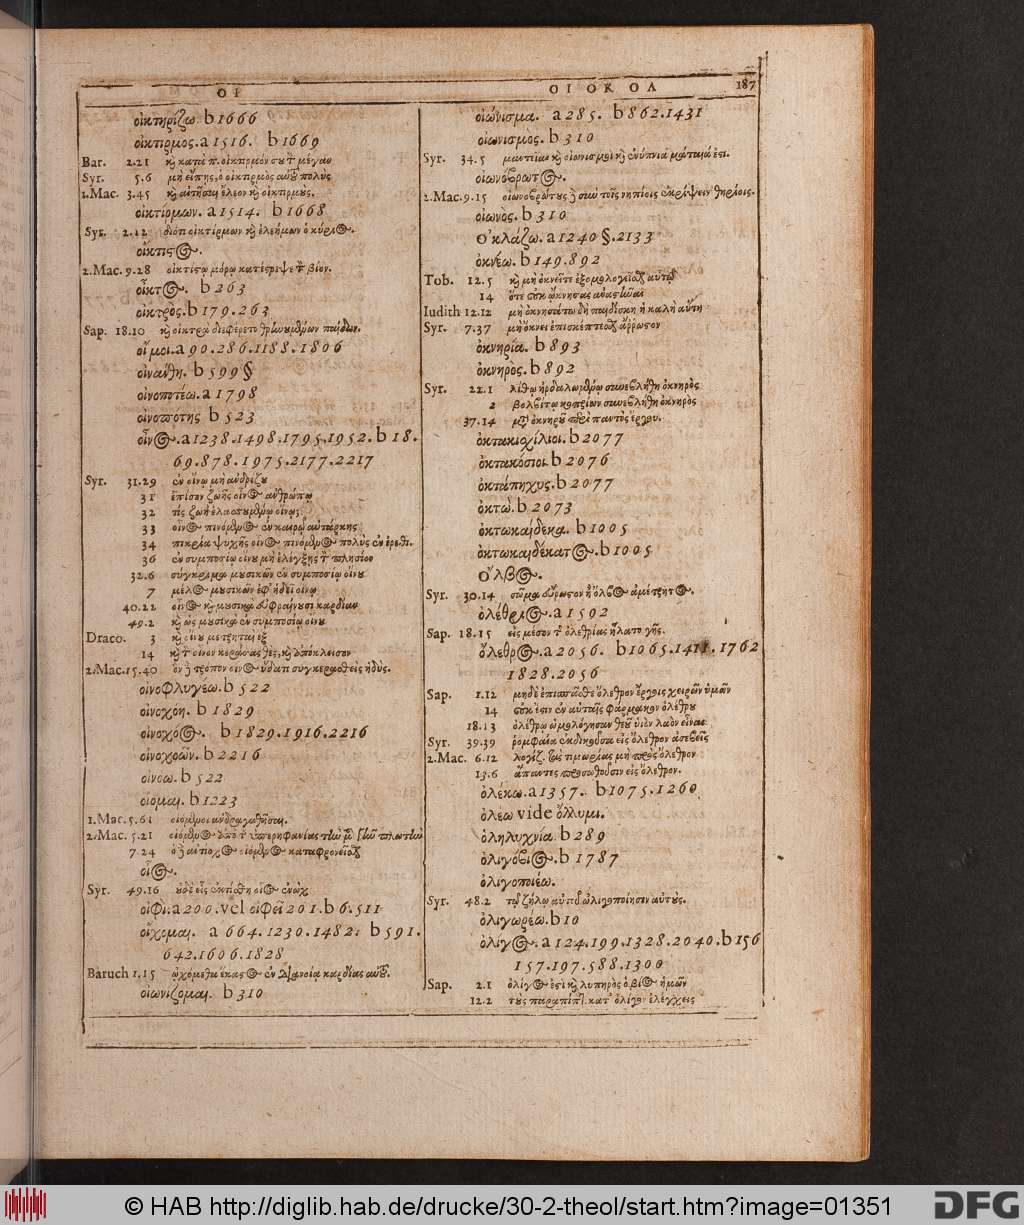 ΟΙ
ΟΙ ΟΚ ΟΛ 187
οἰκτηρίζω. b 1666
οἰκτιρμος. a 1516. b 1669
Bar. 2.21 κỳ κατὰ π. οἰκτιρμόν σου τ̃ μέγαν
Syr. 5.6 μὴ εἴπης, ὁ οἰκτιρμὸς αὐτοῦ πολὺς
1.Mac. 3.45 ἔλεον κỳ οἰκτιρμοὺς.
οἰκτίρμων. a 1514. b 1668
Syr. 2.12 διότι οἰκτίρμων κỳ ἐλεήμων ὁ κύριος.
οἴκτιστος.
2.Mac. 9.28 οἰκτίστῳ μόρῳ κατέστρεψε τ̃ βίον.
οἶκτος. b 263
οἰκτρὸς. b 179. 263
Sap. 18.10 κỳ οἰκτρὰ διεφέρετο θρηνουμένων παίδων.
οἴ μοι. a 90. 286. 1188. 1806
οἰνάνθη. b 599 §
οἰνοποτέω. a 1798
οἰνοπότης b 523
οἶνος. a 1238. 1498. 1795. 1952. b 18.
69. 878. 1975. 2177. 2217
Syr. 31.29 ἐν οἴνῳ μὴ ἀνδρίζου
31 ἔπισον ζωῆς οἶνος ἀνθρώπῳ
32 τίς ζωὴ ἐλασσουμένῳ οἴνῳ;
33 οἶνος πινόμενος ἐν καιρῷ αὐτάρκης
34 πικρία ψυχῆς οἶνος πινόμενος πολὺς ἐν ἐρεθι.
36 ἐν συμποσίῳ οἴνου μὴ ἐλέγξης τ̃ πλησίον
32.6 σύγκριμα μουσικῶν ἐν συμποσίῳ οἴνου
7 μέλος μουσικῶν ἐφ' ἡδεῖ οἴνῳ
40.22 οἶνος κỳ μουσικὰ εὐφραίνουσι καρδίαν
49.2 κỳ ὡς μουσικὰ ἐν συμποσίῳ οἴνου
Draco. 3 κỳ οἴνου μετρηταὶ ἓξ
14 κỳ τ̃ οἶνον κεράσας θες, κỳ ἀπόκλεισον
2.Mac. 15.40 ὃν ἢ τρόπον οἶνος ὕδατι συγκερασθεὶς ἡδὺς.
οἰνοφλυγέω. b 522
οἰνοχόη. b 1829
οἰνοχόος. b 1829. 1916. 2216
οἰνοχοῶν. b 2216
οἰνόω. b 522
οἴομαι. b 1223
1.Mac. 5.61 οἰόμενοι ἀνδραγαθῆσαι.
2.Mac. 5.21 οἰόμενος ἀπὸ τ̃ ὑπερηφανίας τὴν μ̃ γῆν πλωτὴν
7.24 ὁ ἢ ἀντίοχος οἰόμενος καταφρονεῖσθ
οἷος.
Syr. 49.16 οὐδὲ εἷς ἐκτίσθη οἷος ἐνώχ
οἰφι. a 200. vel οἰφεὶ 201. b 6. 511
οἴχομαι. a 664. 1230. 1482. b 591.
642. 1606. 1828
Baruch 1.15 ᾠχόμεθα ἕκαστος ἐν διανοίᾳ καρδίας αὐτοῦ.
οἰωνίζομαι. b 310
οἰώνισμα. a 285. b 862. 1431
οἰωνισμὸς. b 310
Syr. 34.5 μαντεῖαι κỳ οἰωνισμοὶ κỳ ἐνύπνια μάταιά ἐστι.
οἰωνόβρωτος.
2.Mac. 9.15 οἰωνοβρώτους ἢ σὺν τοῖς νηπίοις ἐκρίψειν θηρίοις.
οἰωνὸς. b 310
Ὀκλάζω. a 1240 §. 2133
ὀκνέω. b 149. 892
Tob. 12.5 κỳ μὴ ὀκνεῖτε ἐξομολογεῖσθ αὐτῷ
14 ὅτε οὐκ ὤκνησας ἀναστῆναι
Iudith 12.12 μὴ ὀκνησάτω δὴ παιδίσκη ἡ καλὴ αὕτη
Syr. 7.37 μὴ ὄκνει ἐπισκέπτεσθ ἄρρωστον
ὀκνηρία. b 893
ὀκνηρὸς. b 892
Syr. 22.1 λίθῳ ἠρδαλωμένῳ συνεβλήθη ὀκνηρὸς
2 βολβίτῳ κοπρίων συνεβλήθη ὀκνηρὸς
37.14 μετ' ὀκνηροῦ περὶ παντὸς ἔργου.
ὀκτακισχίλιοι. b 2077
ὀκτακόσιοι. b 2076
ὀκτάπηχυς. b 2077
ὀκτὼ. b 2073
ὀκτωκαίδεκα. b 1005
ὀκτωκαιδέκατος. b 1005
Ὄλβος.
Syr. 30.14 σῶμα εὔρωστον ἢ ὄλβος ἀμέτρητος.
ὀλέθριος. a 1592
Sap. 18.15 εἰς μέσον τ̃ ὀλεθρίας ἥλατο γῆς.
ὄλεθρος. a 2056. b 1065. 1411. 1762
1828. 2056
Sap. 1.12 μηδὲ ἐπισπᾶσθε ὄλεθρον ἔργοις χειρῶν ὑμῶν
14 οὐκ ἔστιν ἐν αὐταῖς φάρμακον ὀλέθρου
18.13 ὀλέθρῳ ὡμολόγησαν θεοῦ υἱὸν λαὸν εἶναι
Syr. 39.39 ῥομφαία ἐκδικοῦσα εἰς ὄλεθρον ἀσεβεῖς
2.Mac. 6.12 λογίζ. τὰς τιμωρίας μὴ πρὸς ὄλεθρον
13.6 ἅπαντες προσωθοῦσιν εἰς ὄλεθρον.
ὀλέκω. a 1357. b 1075. 1260
ὀλέω vide ὄλλυμι.
ὀληλυχνία. b 289
ὀλιγόβιος. b 1787
ὀλιγοποιέω.
Syr. 48.2 τῷ ζήλῳ αὐτοῦ ὠλιγοποίησεν αὐτοὺς.
ὀλιγωρέω. b 10
ὀλίγος. a 124. 199. 1328. 2040. b 156
157. 197. 588. 1300
Sap. 2.1 ὀλίγος ἐστὶ κỳ λυπηρὸς ὁ βίος ἡμῶν
12.2 τοὺς παραπίπ]. κατ' ὀλίγον ἐλέγχεις
© HAB http://diglib.hab.de/drucke/30-2-theol/start.htm?image=01351
DFG